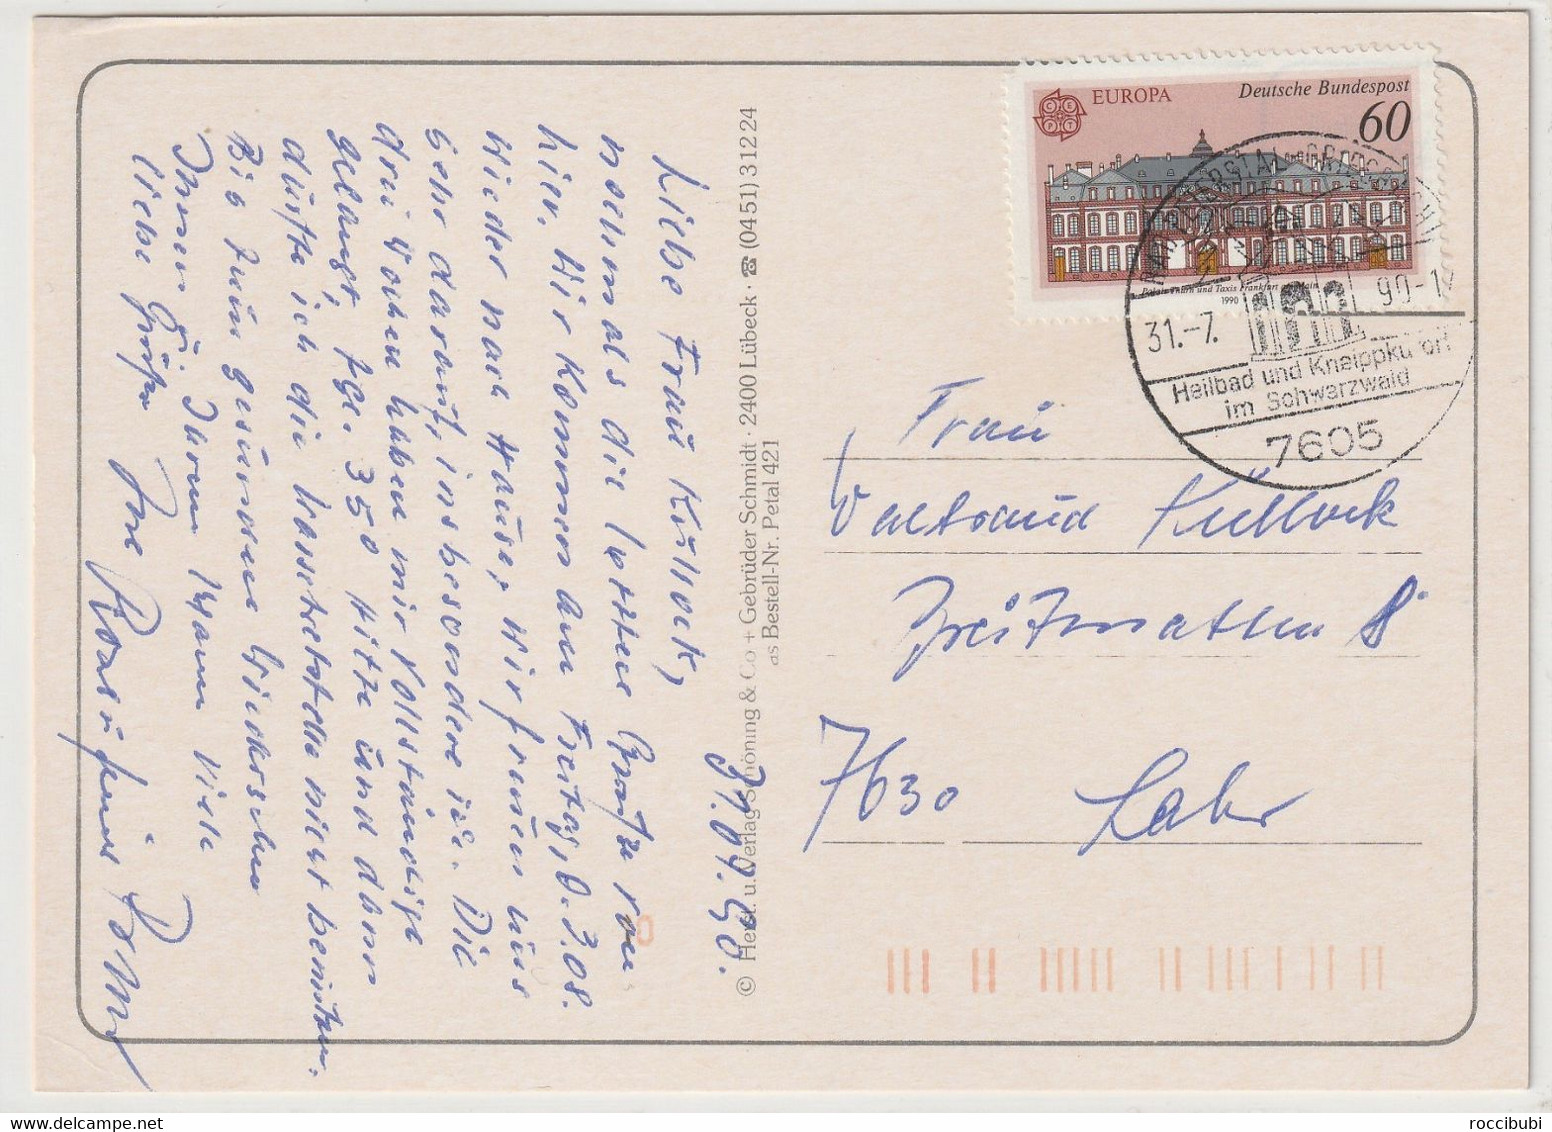 EUROPA
Deutsche Bundespost
60
CEPT
Palais Thurn und Taxis Frankfurt am Main
1990
31.-7. 90-1
Heilbad und Kneippkurort
im Schwarzwald
7605
31.07.90.
Liebe Frau Küllock,
nochmals die letzten Grüße von
hier. Wir kommen am Freitag, d. 3.08.
wieder nach Hause, wir freuen uns
sehr darauf, insbesondere ich. Die
drei Wochen haben mir vollständig
gelangt, tgl. 35° Hitze und dann
durfte ich die Wassertretstelle nicht benützen.
Bis zum gesunden Wiedersehen
Ihnen u. Ihrem Mann viele
liebe Grüße Ihre
© Herst. u. Verlag Schöning & Co + Gebrüder Schmidt · 2400 Lübeck · ☎ (0451) 3 12 24
as Bestell-Nr. Petal 421
Frau
Waltraud Küllock
Breitmatten 8
7630 Lahr
roccibubi